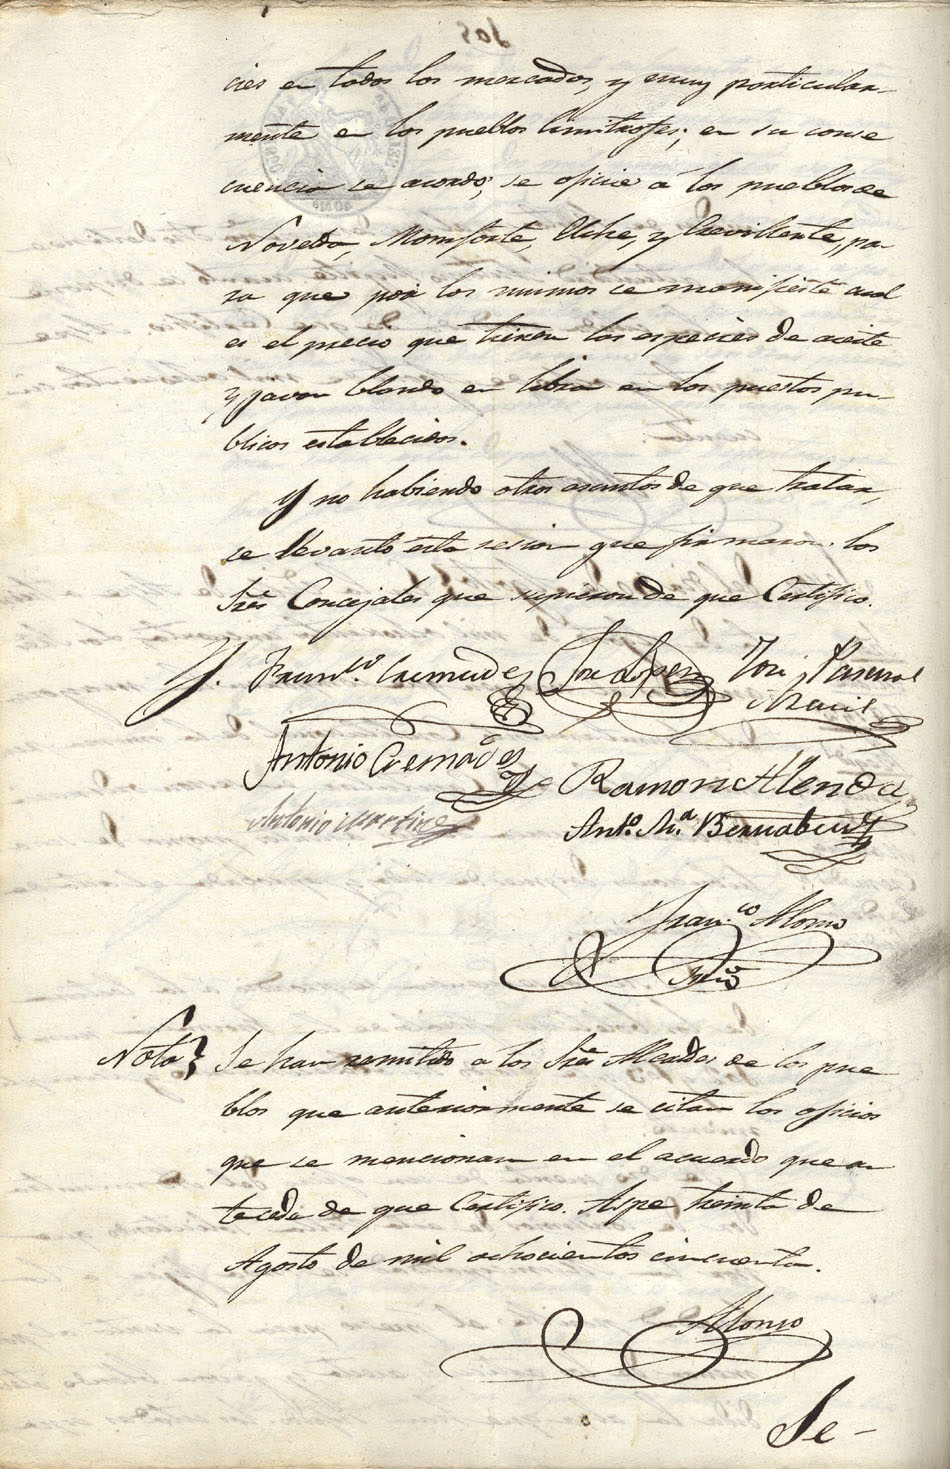 cies en todos los mercados, y muy particular-
mente en los pueblos limitrofes; en su conse
cuencia se acordó, se oficie á los pueblos de
Novelda, Monforte, Elche, y Crevillente, pa-
ra que por los mismos se manifieste cual
es el precio que tienen las especies de aceite
y javon blando en libra en los puestos pu-
blicos establecidos.
Y no habiendo otros asuntos de que tratar,
se llevanto esta sesion que firmaron los
Sres Concejales que supieron de que Certifico.
Franco. Cremades Jose Lopez Jose Pascual
Antonio Cremades
Ramon Alenda
Antonio Martinez
Anto. Ma. Bernabeu
Franco. Alonso
Srio
Nota Se han remitido a los Sres Alcaldes de los pue
blos que anteriormente se citan los oficios
que se mencionan en el acuerdo que an
tecede de que Certifico. Aspe treinta de
Agosto de mil ochocientos cincuenta.
Alonso
Se-